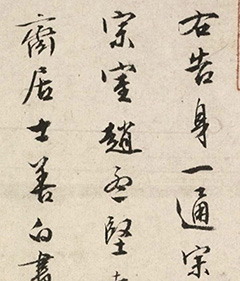 右告身一通宋
宗室趙孟堅
齋居士善白